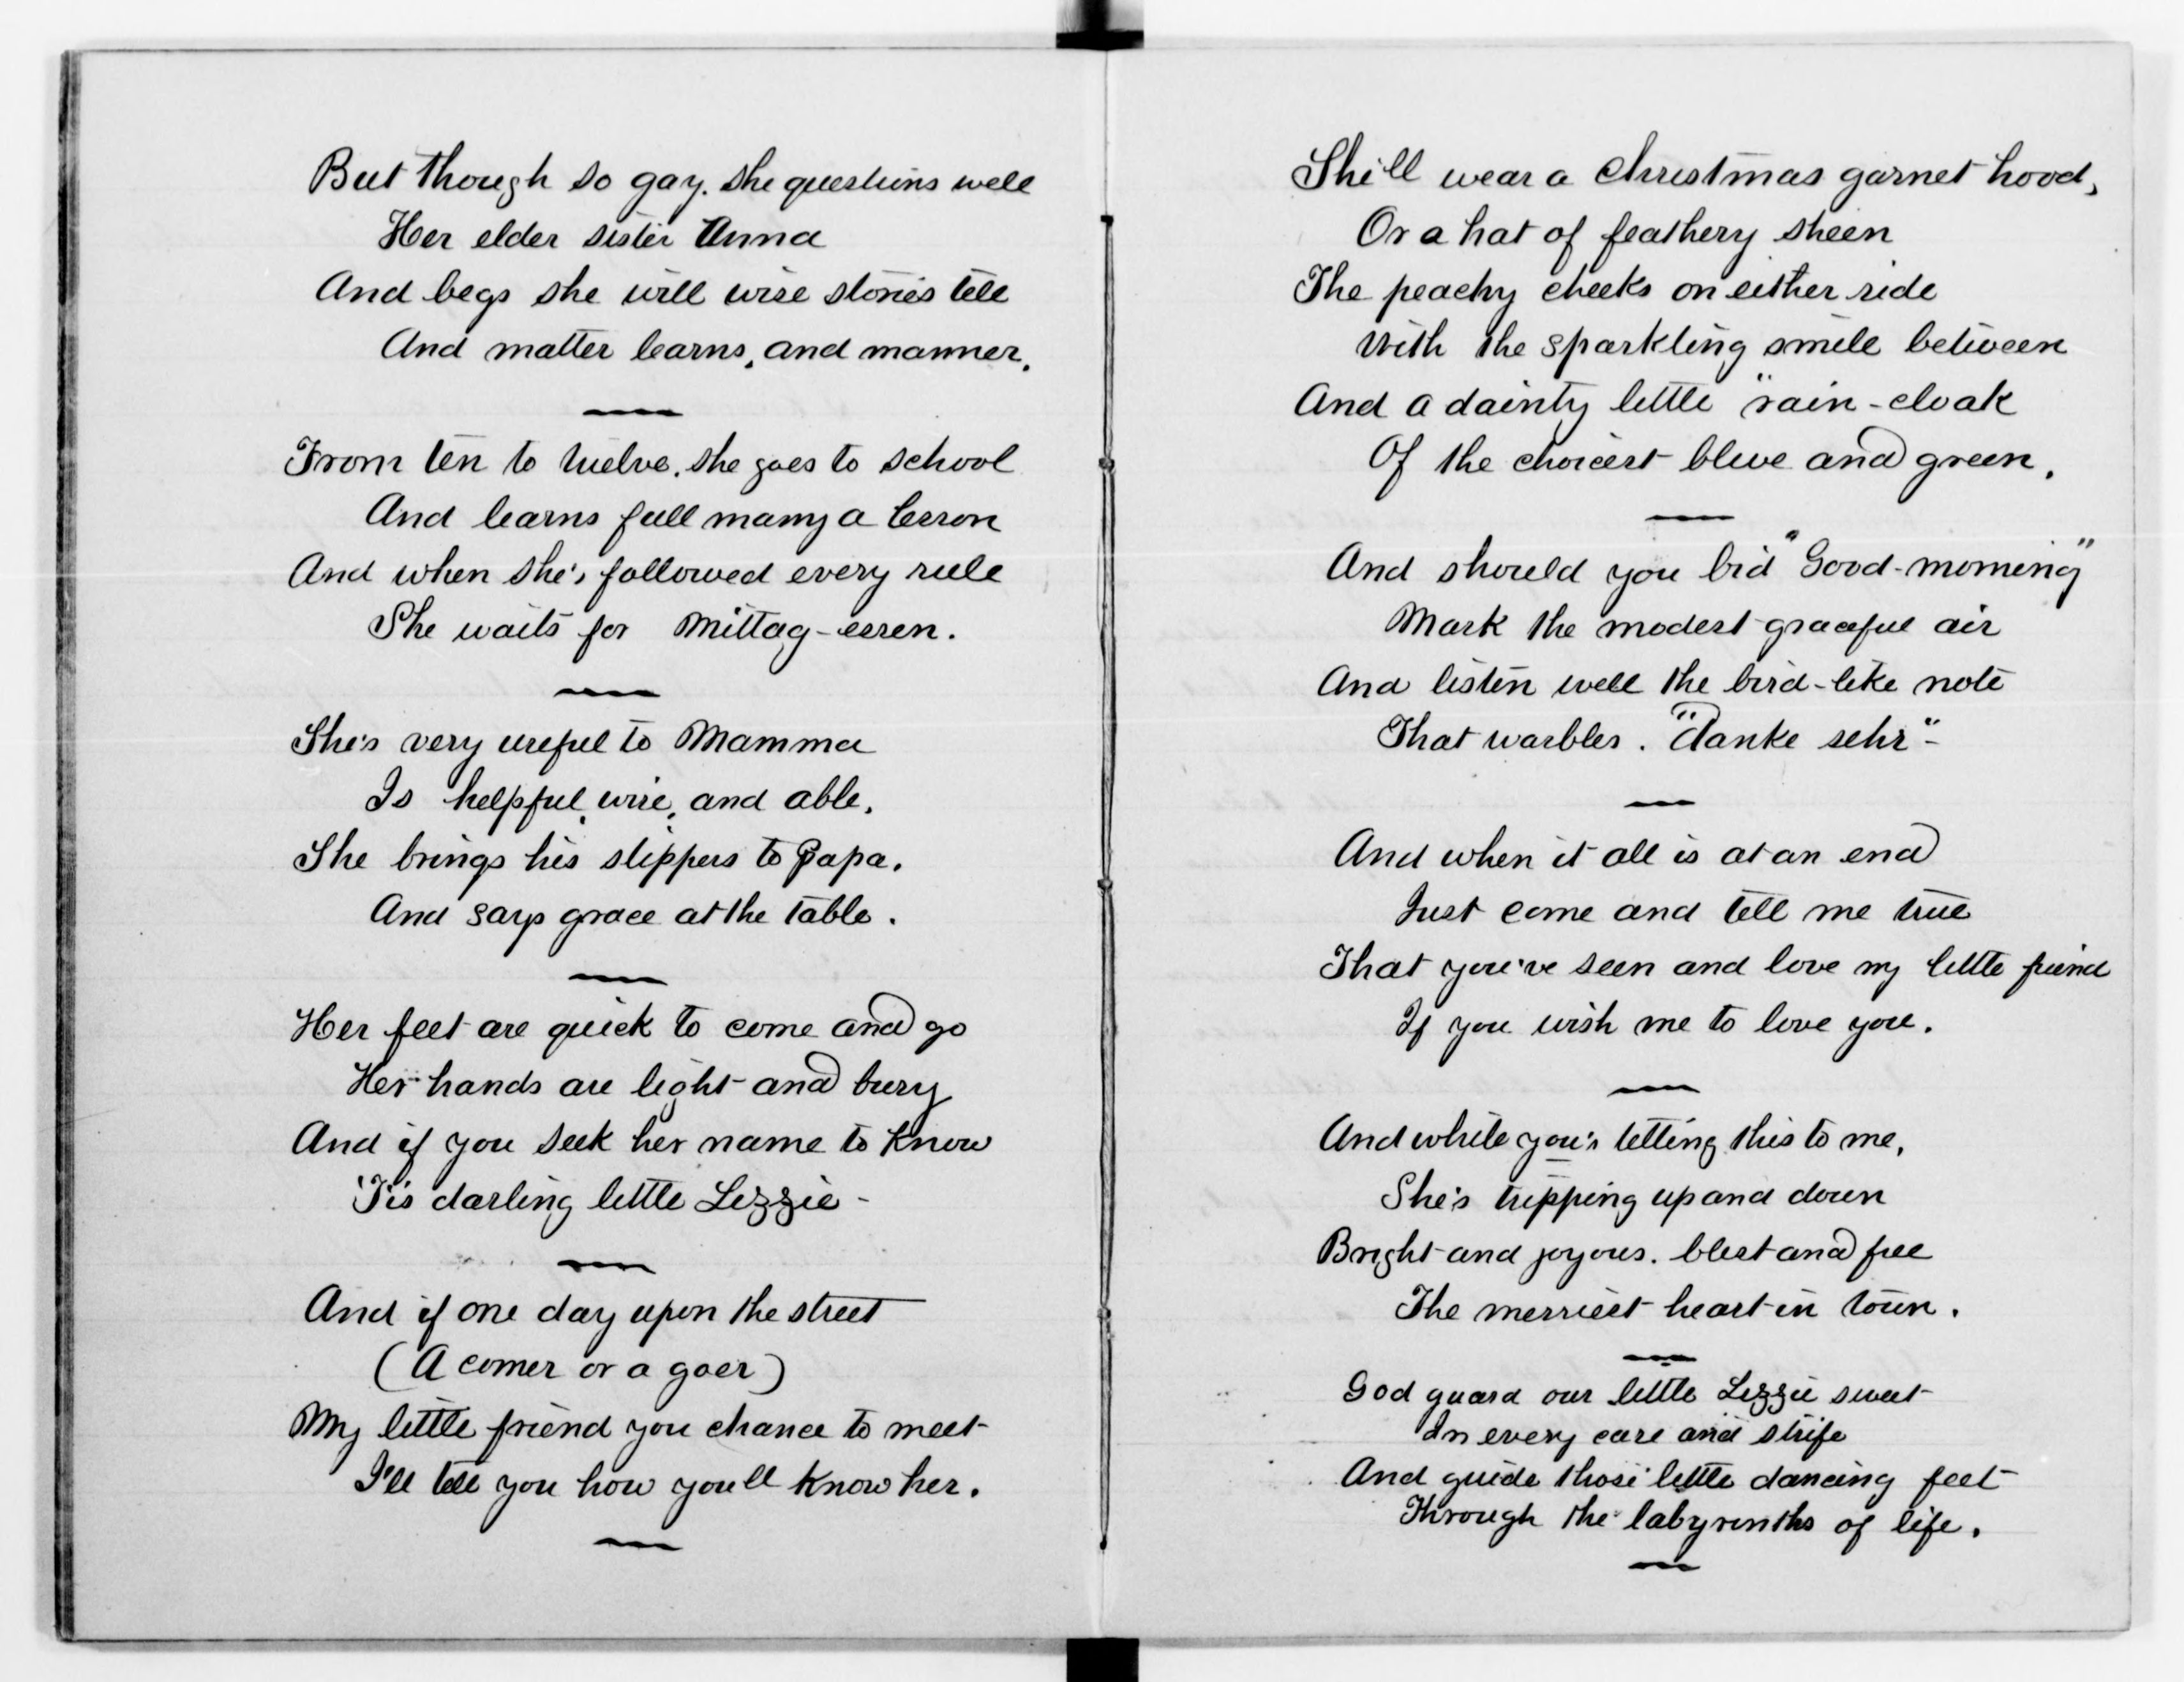 But though so gay. she questions well
Her elder sister Anna
And begs she will wise stories tell
And matter learns, and manner.
From ten to twelve. she goes to school
And learns full many a lesson
And when she's followed every rule
She waits for Mittag-essen.
She's very useful to Mamma
Is helpful, wise, and able.
She brings his slippers to Papa.
And says grace at the table.
Her feet are quick to come and go
Her hands are light and busy
And if you seek her name to know
'Tis darling little Lizzie -
And if one day upon the street
(A comer or a goer)
My little friend you chance to meet
I'll tell you how you'll know her.
She'll wear a Christmas garnet hood,
Or a hat of feathery sheen
The peachy cheeks on either side
With the sparkling smile between
And a dainty little "rain-cloak
Of the choicest blue and green.
And should you bid "Good-morning"
Mark the modest graceful air
And listen well the bird-like note
That warbles. "danke sehr"-
And when it all is at an end
Just come and tell me true
That you've seen and love my little friend
If you wish me to love you.
And while you's telling this to me,
She's tripping up and down
Bright and joyous. blest and free
The merriest heart in town.
God guard our little Lizzie sweet
In every care and strife
And guide those little dancing feet
Through the labyrinths of life.